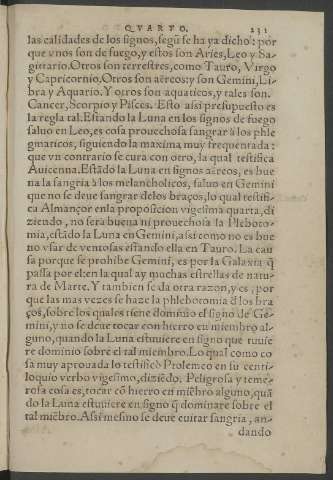 QVARTO. 231
las calidades de los signos, segũ se ha ya dicho: por
que vnos son de fuego, y estos son Aries, Leo y Sa-
gittario. Otros son terrestres, como Tauro, Virgo
y Capricornio. Otros son aëreos: y son Gemini, Li-
bra y Aquario. Y otros son aquaticos, y tales son.
Cancer, Scorpio y Pisces. Esto assi presupuesto es
la regla tal. Estando la Luna en los signos de fuego
saluo en Leo, es cosa prouechosa sangrar â los phle
gmaticos, siguiendo la maxima muy frequentada:
que vn contrario se cura con otro, la qual testifica
Auicenna. Estãdo la Luna en signos aëreos, es bue
na la sangria â los melancholicos, saluo en Gemini
que no se deue sangrar de los braços, lo qual testifi-
ca Almançor en la proposicion vigesima quarta, di
ziendo, no sera buena ni prouechosa la Phleboto-
mia, estãdo la Luna en Gemini, assi como no es bue
no vsar de ventosas estando ella en Tauro. La cau
sa porque se prohibe Gemini, es por la Galaxia q̃
passa por el: en la qual ay muchas estrellas de natu-
ra de Marte. Y tambien se da otra razon, y es, por
que las mas vezes se haze la phlebotomia d̃ los bra
ços, sobre los quales tiene dominio el signo de Ge-
mini, y no se deue tocar con hierro en miembro al-
guno, quando la Luna estuuiere en signo que tuuie
re dominio sobre el tal miembro. Lo qual como co
sa muy aprouada lo testificò Ptolemeo en su centi-
loquio verbo vigesimo, diziẽdo. Peligrosa y teme-
rosa cosa es, tocar cõ hierro en miẽbro alguno, quã
do la Luna estuuiere en signo q̃ dominare sobre el
tal miẽbro. Assi mesmo se deue euitar sangria, an-
dando